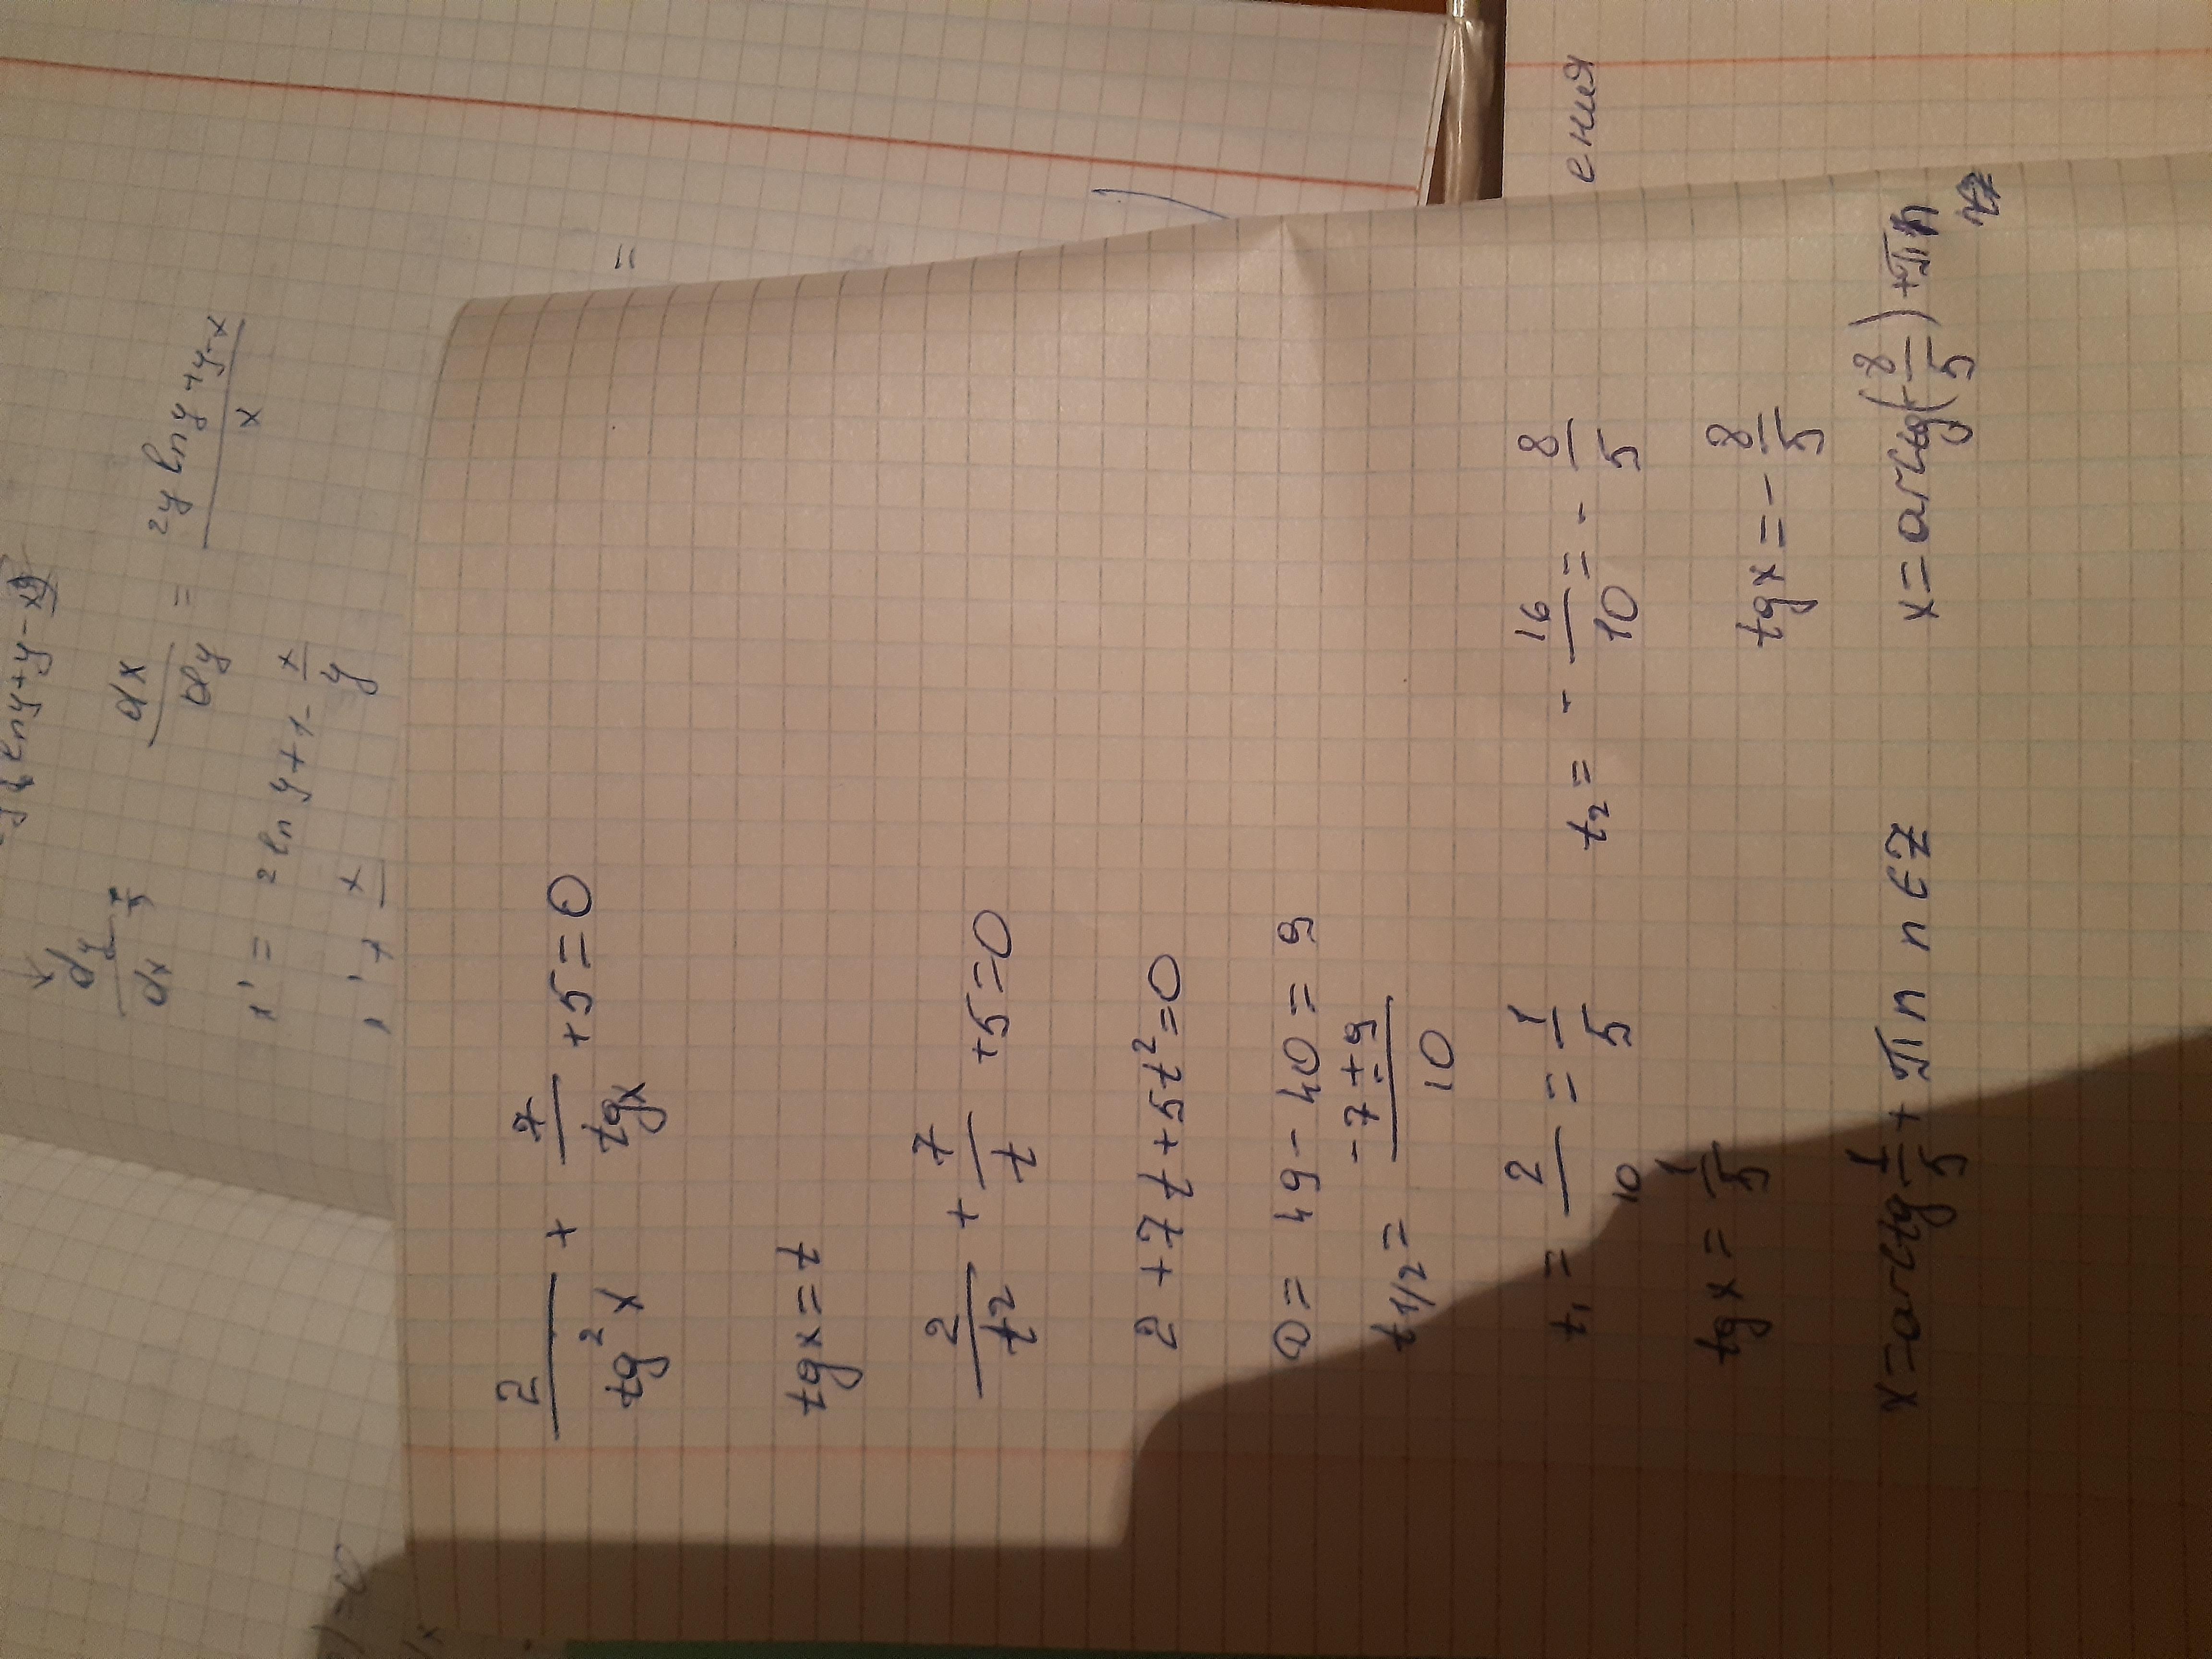 2/tg²x + 7/tgx + 5 = 0
tgx = t
2/t² + 7/t + 5 = 0
2 + 7t + 5t² = 0
D = 49 - 40 = 9
t1/2 = (-7 ± 9)/10
t₁ = 2/10 = 1/5
t₂ = - 16/10 = - 8/5
tgx = 1/5
tgx = - 8/5
x = arctg 1/5 + πn n ∈ Z
x = arctg(-8/5) + πn
n∈Z
ения
lny + y - xy
dy/dx
dx/dy = (2y lny + y - x)/x
x' = 2 lny + 1 - x/y
x' + x
=